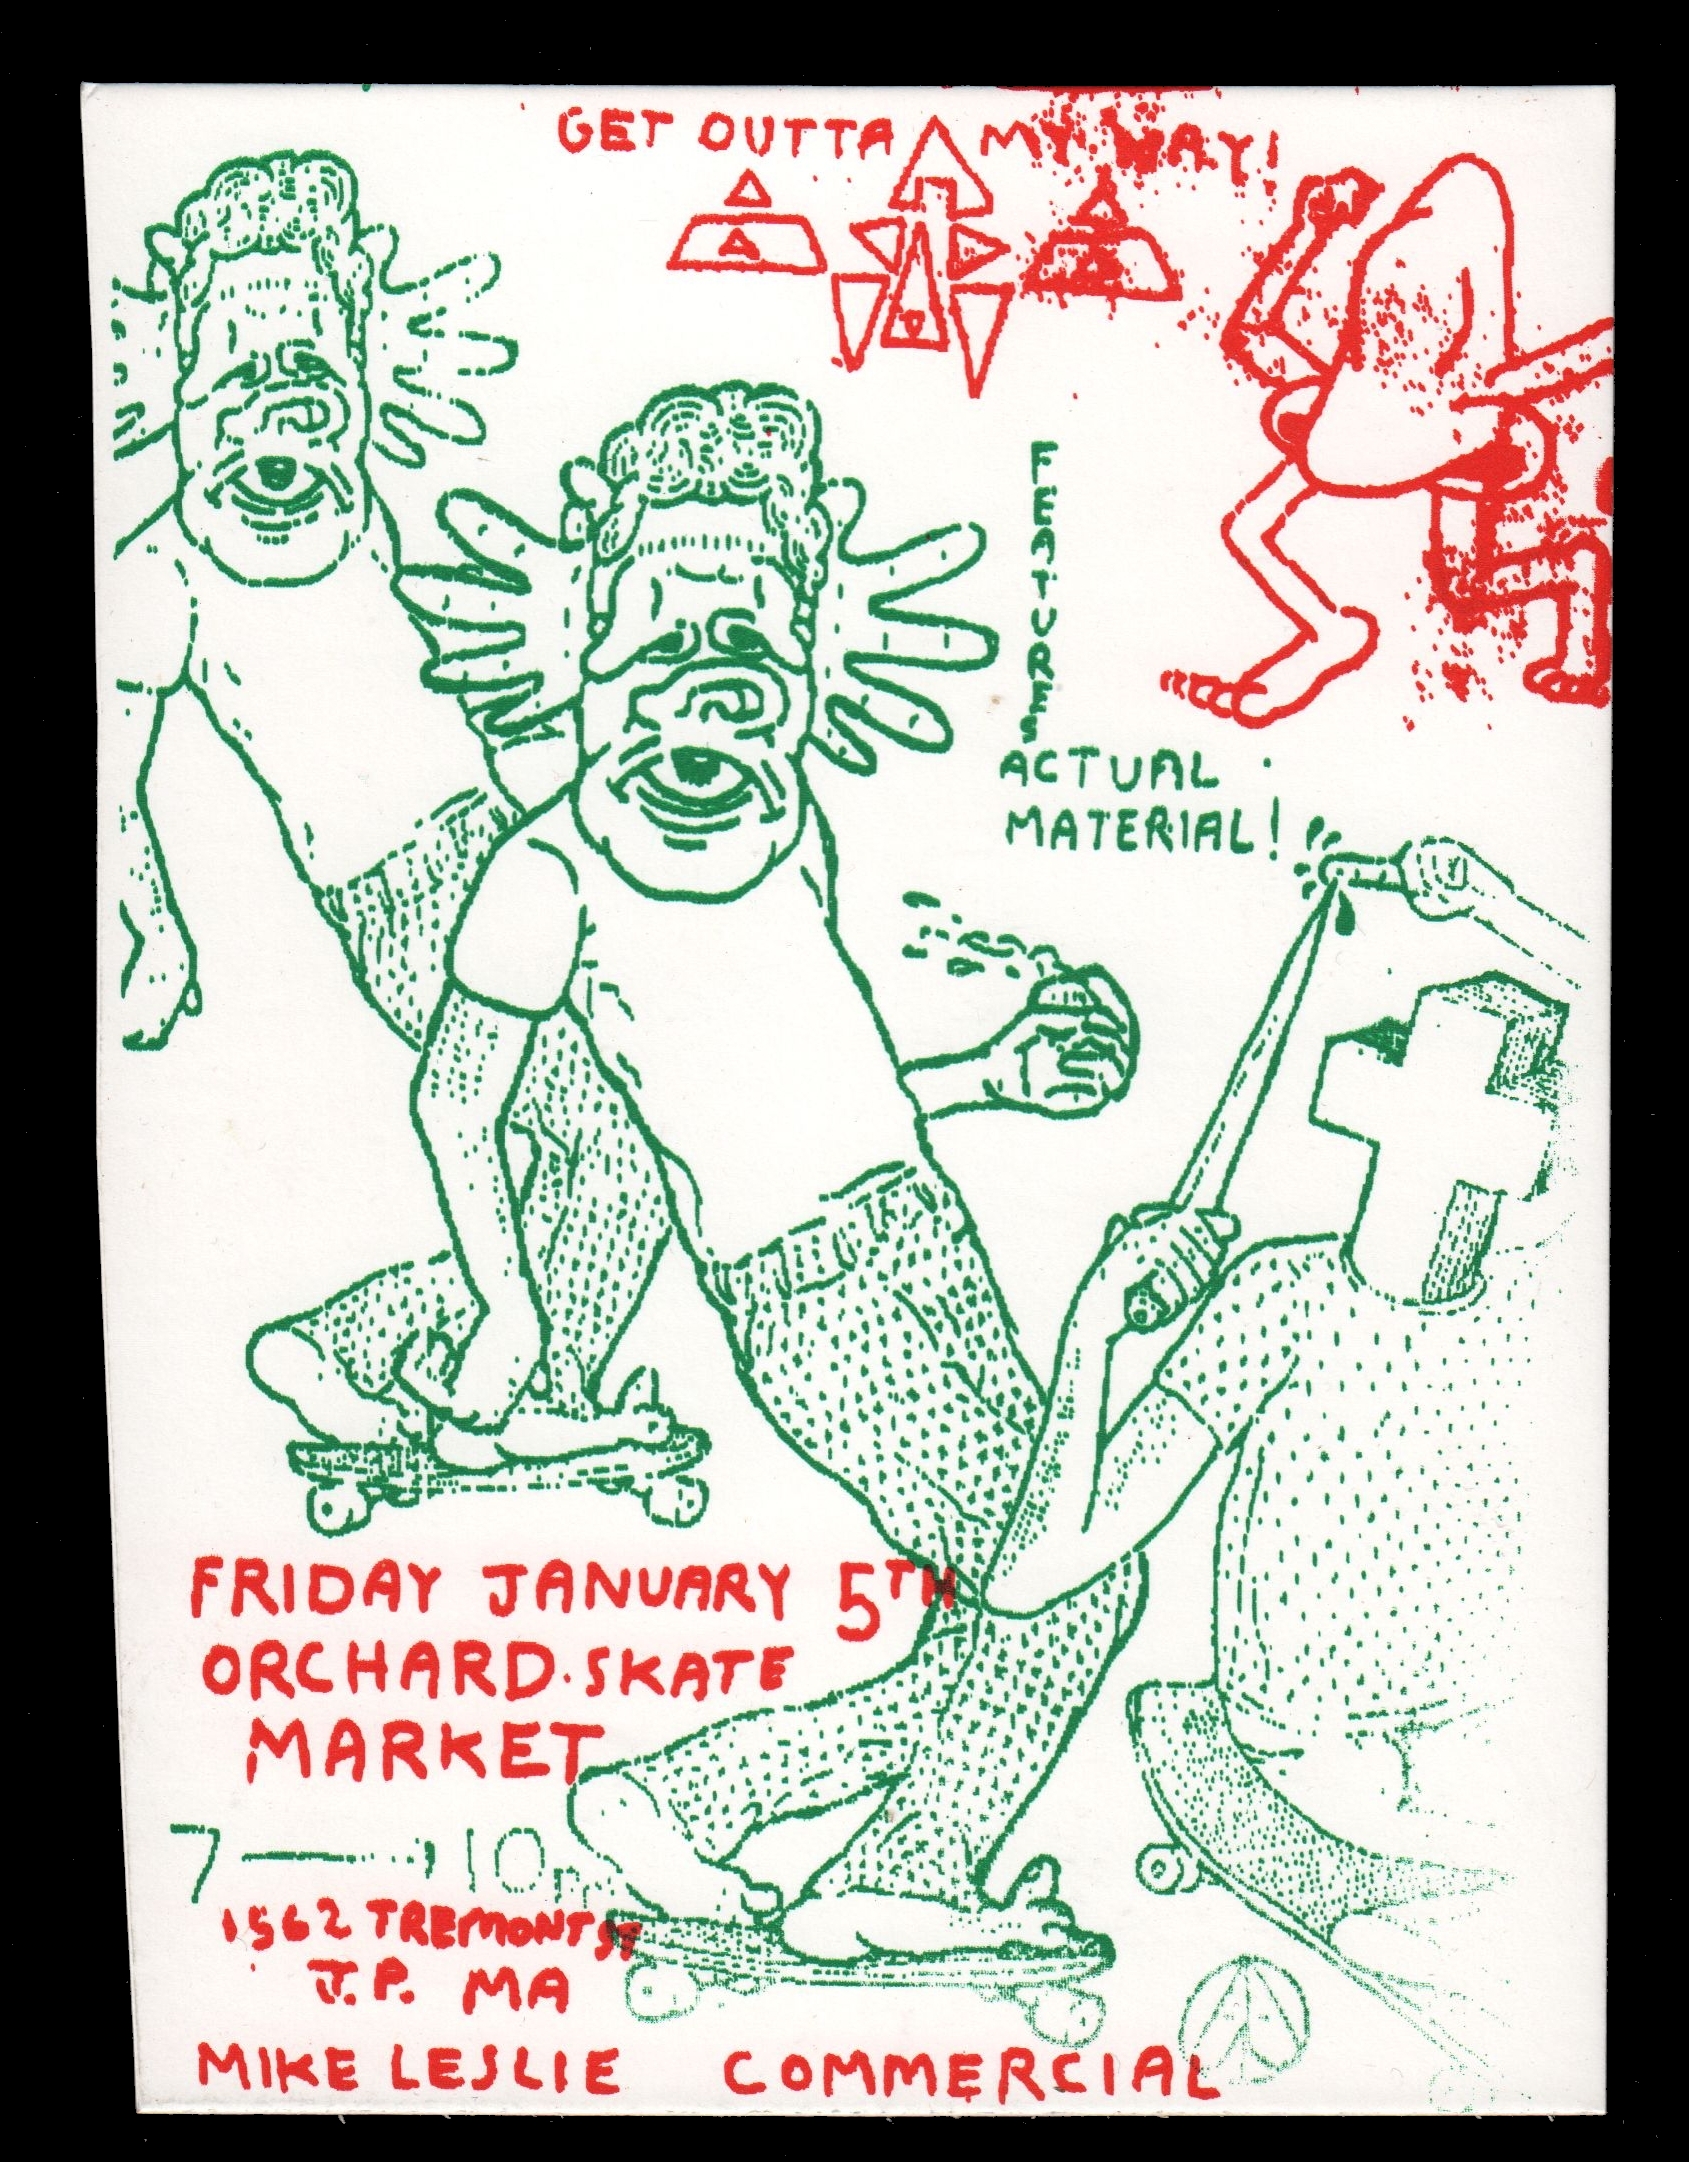 GET OUTTA MY WAY!
FEATURES
ACTUAL
MATERIAL!
FRIDAY JANUARY 5TH
ORCHARD.SKATE
MARKET
7 → 10pm
1562 TREMONT ST
J.P. MA
MIKE LESLIE COMMERCIAL